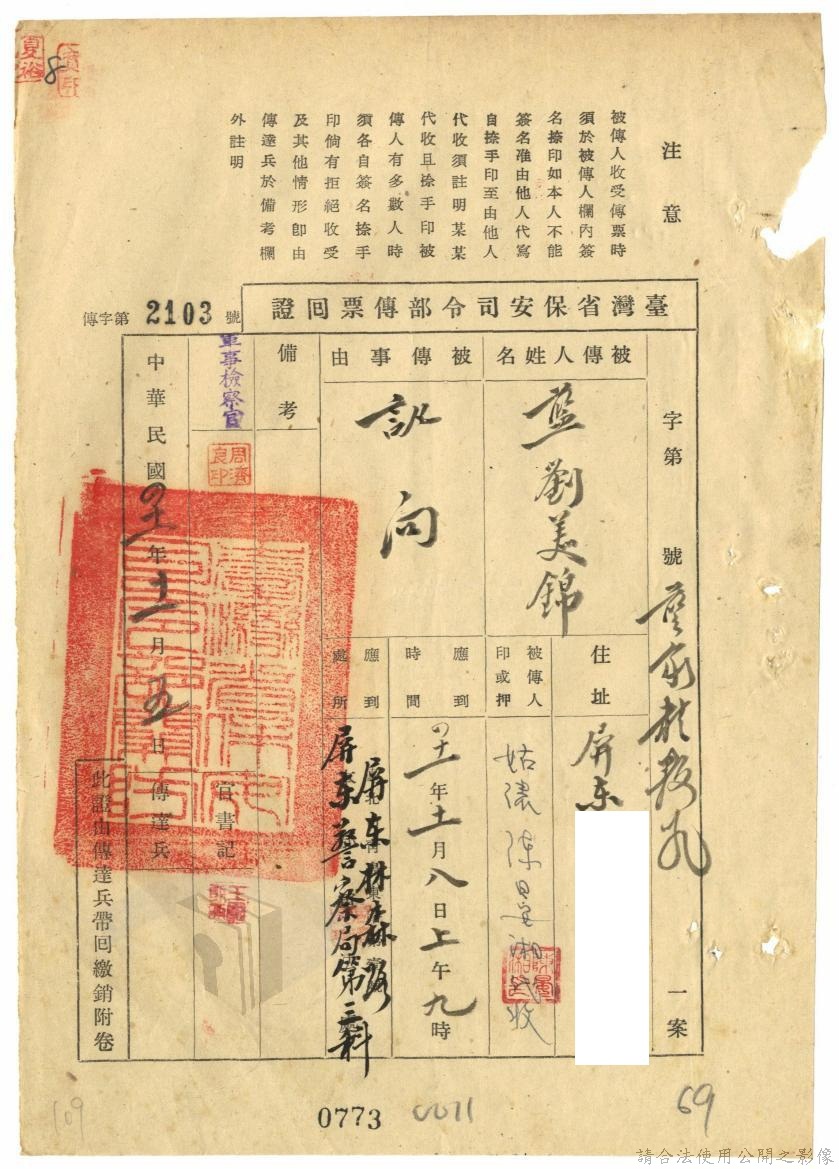 8
注意
被傳人收受傳票時
須於被傳人欄內簽
名捺印如本人不能
簽名准由他人代寫
自捺手印至由他人
代收須註明某某
代收且捺手印被
傳人有多數人時
須各自簽名捺手
印倘有拒絕收受
及其他情形卽由
傳達兵於備考欄
外註明
臺灣省保安司令部傳票回證
傳字第2103號
字第 號 一案
被傳人姓名
藍劉美錦
住址
屏東
被傳人印或押
姑陳代收
被傳事由
訊問
應到時間
四十一年十一月八日上午九時
應到處所
屏東林森路
屏東警察局第三科
備考
軍事檢察官
周濟良印
官書記
中華民國四十一年十一月五日
傳達兵
此證由傳達兵帶回繳銷附卷
0773
0011
69
109
請合法使用公開之影像